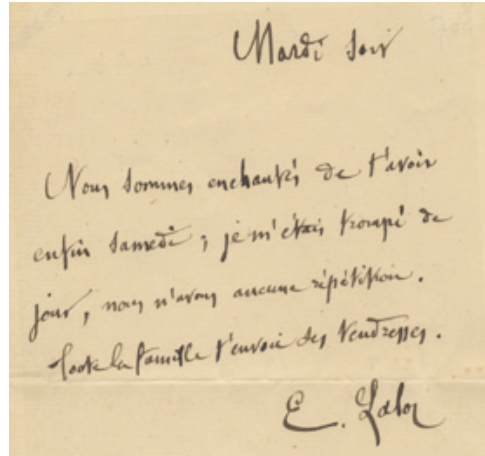 Mardi soir
Nous sommes enchantés de t'avoir
enfin samedi ; je m'étais trompé de
jour, nous n'avons aucune répétition.
Toute la famille t'envoie ses tendresses.
E. Lalo